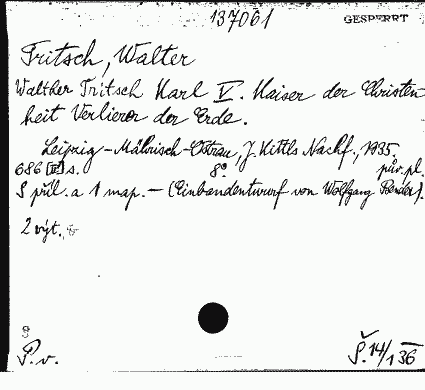 137061
GESPERRT
Tritsch, Walter
Walther Tritsch Karl V. Kaiser der Christen
heit Verlierer der Erde.
Leipzig - Mährisch-Ostrau, J. Kittls Nachf., 1935.
686 s. 8° pův. pl.
S příl. a 1 map. — (Einbandentwurf von Wolfgang Bender).
2 výt.
P. v.
Š. 14/1 36